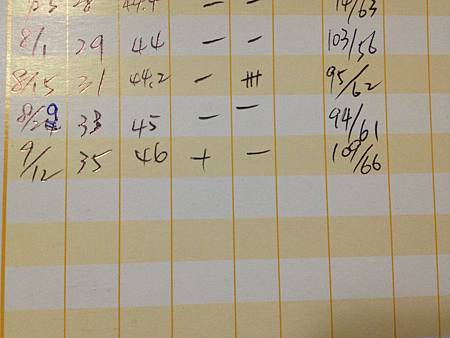 28 44.4 — — 14/63
8/1 29 44 — — 103/56
8/15 31 44.2 — 卌 95/62
8/29 33 45 — — 94/61
9/12 35 46 + — 109/66